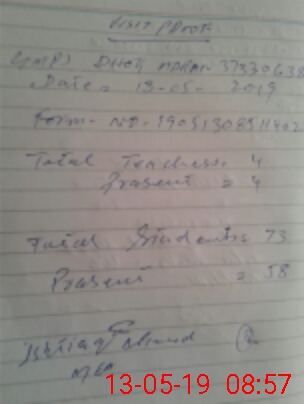 Visit Proof
(GMP) DHOK 37330638
Date = 13-05-2019
Form - NO - 190513085
Total Teachers 4
Present = 4
Total Students 73
Present = 58
Ishtiaq Ahmad
MEA
13-05-19 08:57